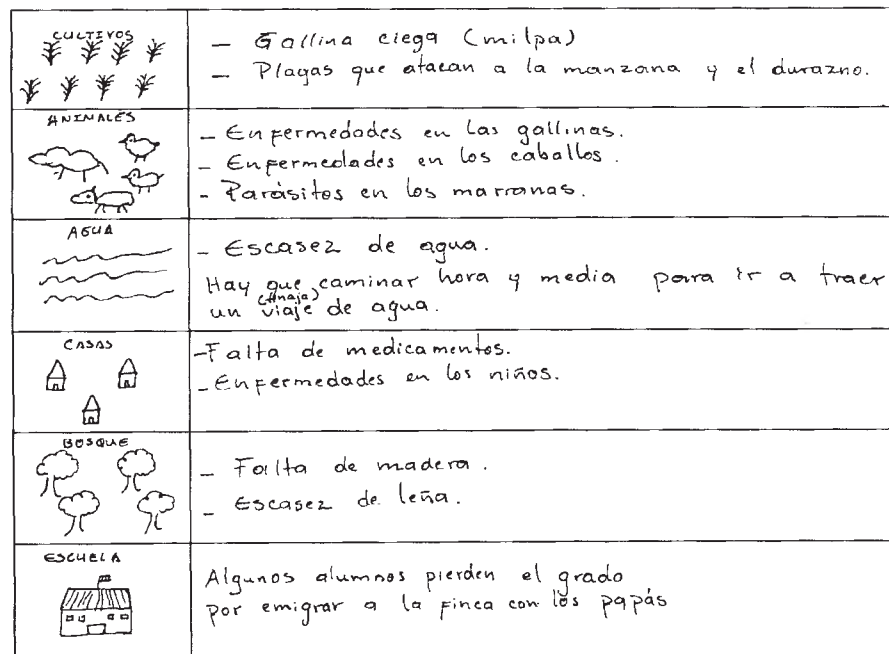 CULTIVOS
- Gallina ciega (milpa)
- Plagas que atacan a la manzana y el durazno.
ANIMALES
- Enfermedades en las gallinas.
- Enfermedades en los caballos.
- Parásitos en los marranas.
AGUA
- Escasez de agua.
Hay que caminar hora y media para ir a traer
(tinaja)
un viaje de agua.
CASAS
- Falta de medicamentos.
- Enfermedades en los niños.
BOSQUE
- Falta de madera.
- Escasez de leña.
ESCUELA
Algunos alumnos pierden el grado
por emigrar a la finca con los papás